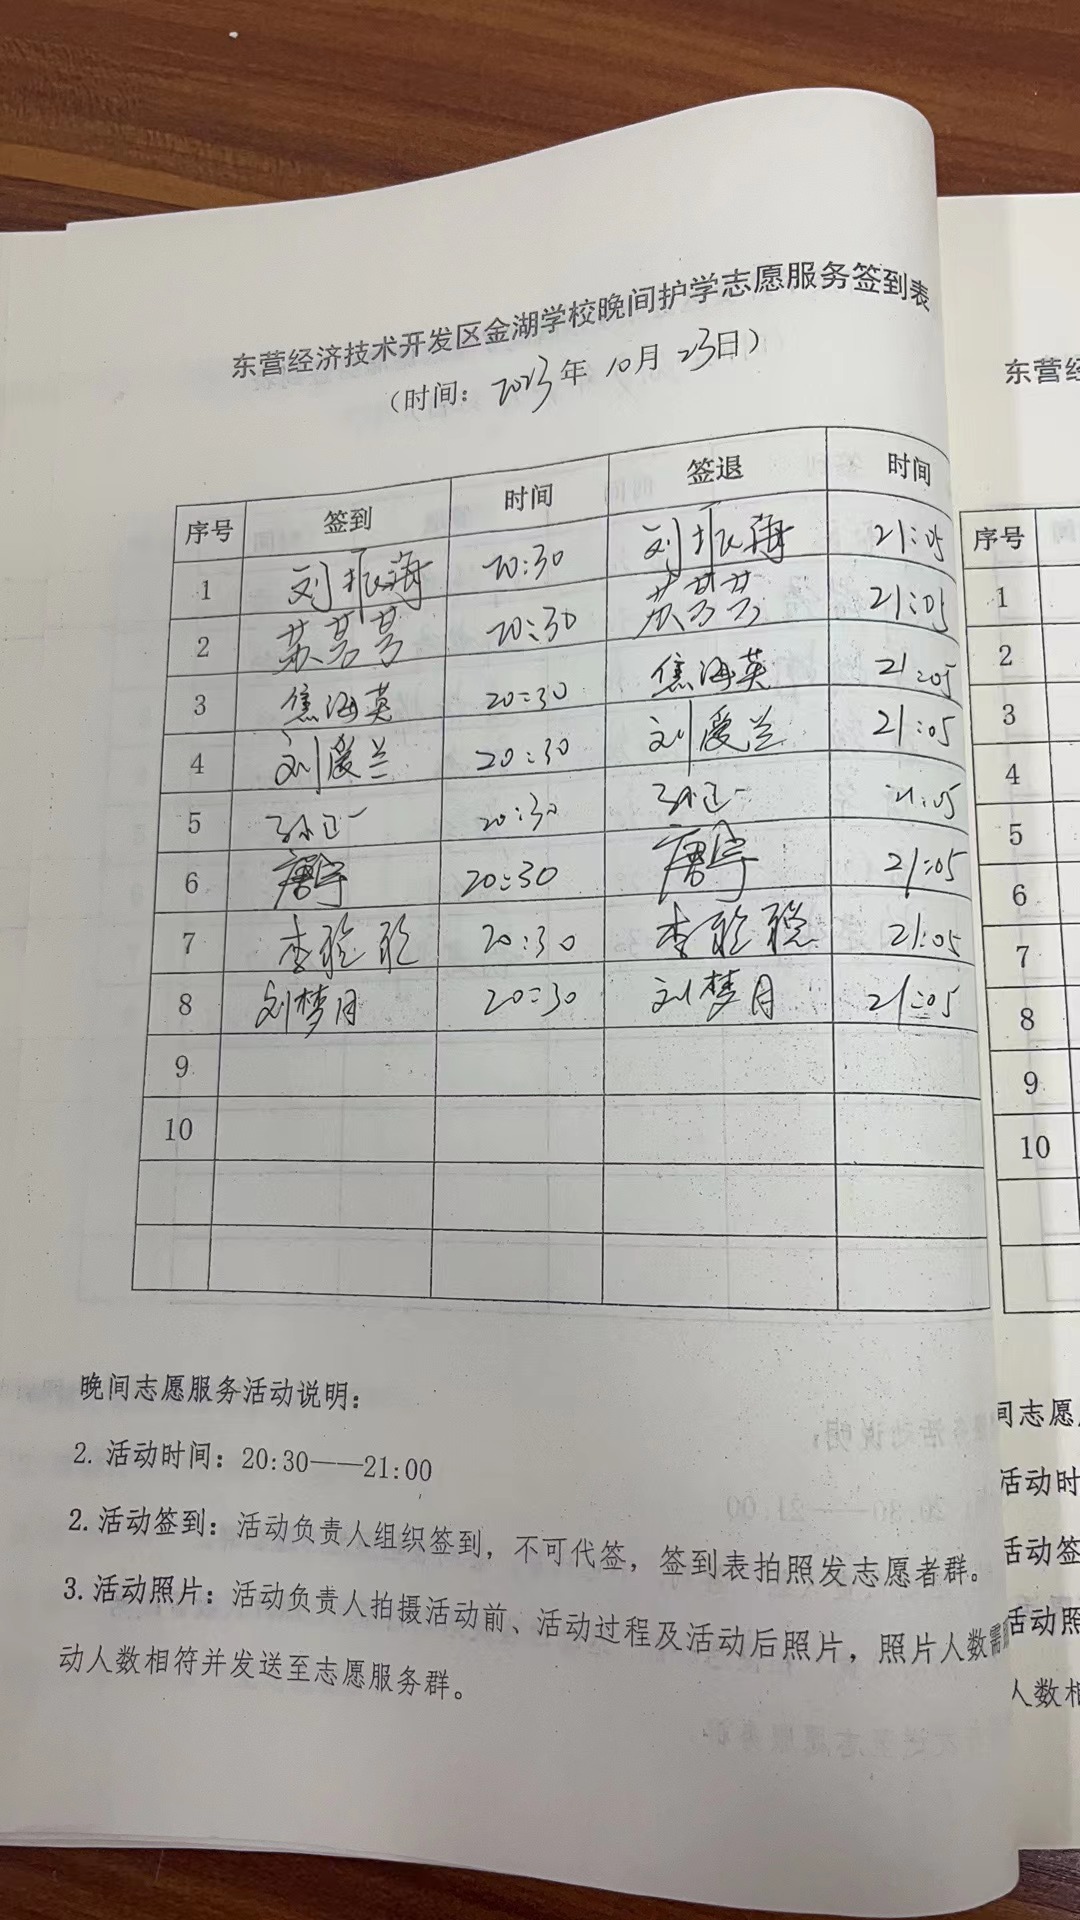 东营经济技术开发区金湖学校晚间护学志愿服务签到表
（时间：2023年 10月 23日）
序号 签到 时间 签退 时间
1 刘振海 20:30 刘振海 21:05
2 苏芳芳 20:30 苏芳芳 21:05
3 焦海英 20:30 焦海英 21:05
4 刘爱兰 20:30 刘爱兰 21:05
5 孙正一 20:30 孙正一 21:05
6 唐宇 20:30 唐宇 21:05
7 李聪聪 20:30 李聪聪 21:05
8 刘梦月 20:30 刘梦月 21:05
9
10
晚间志愿服务活动说明：
2. 活动时间：20:30——21:00
2. 活动签到：活动负责人组织签到，不可代签，签到表拍照发志愿者群。
3. 活动照片：活动负责人拍摄活动前、活动过程及活动后照片，照片人数需
动人数相符并发送至志愿服务群。
东营经
序号
1
2
3
4
5
6
7
8
9
10
间志愿
活动时
活动签
活动照
人数相